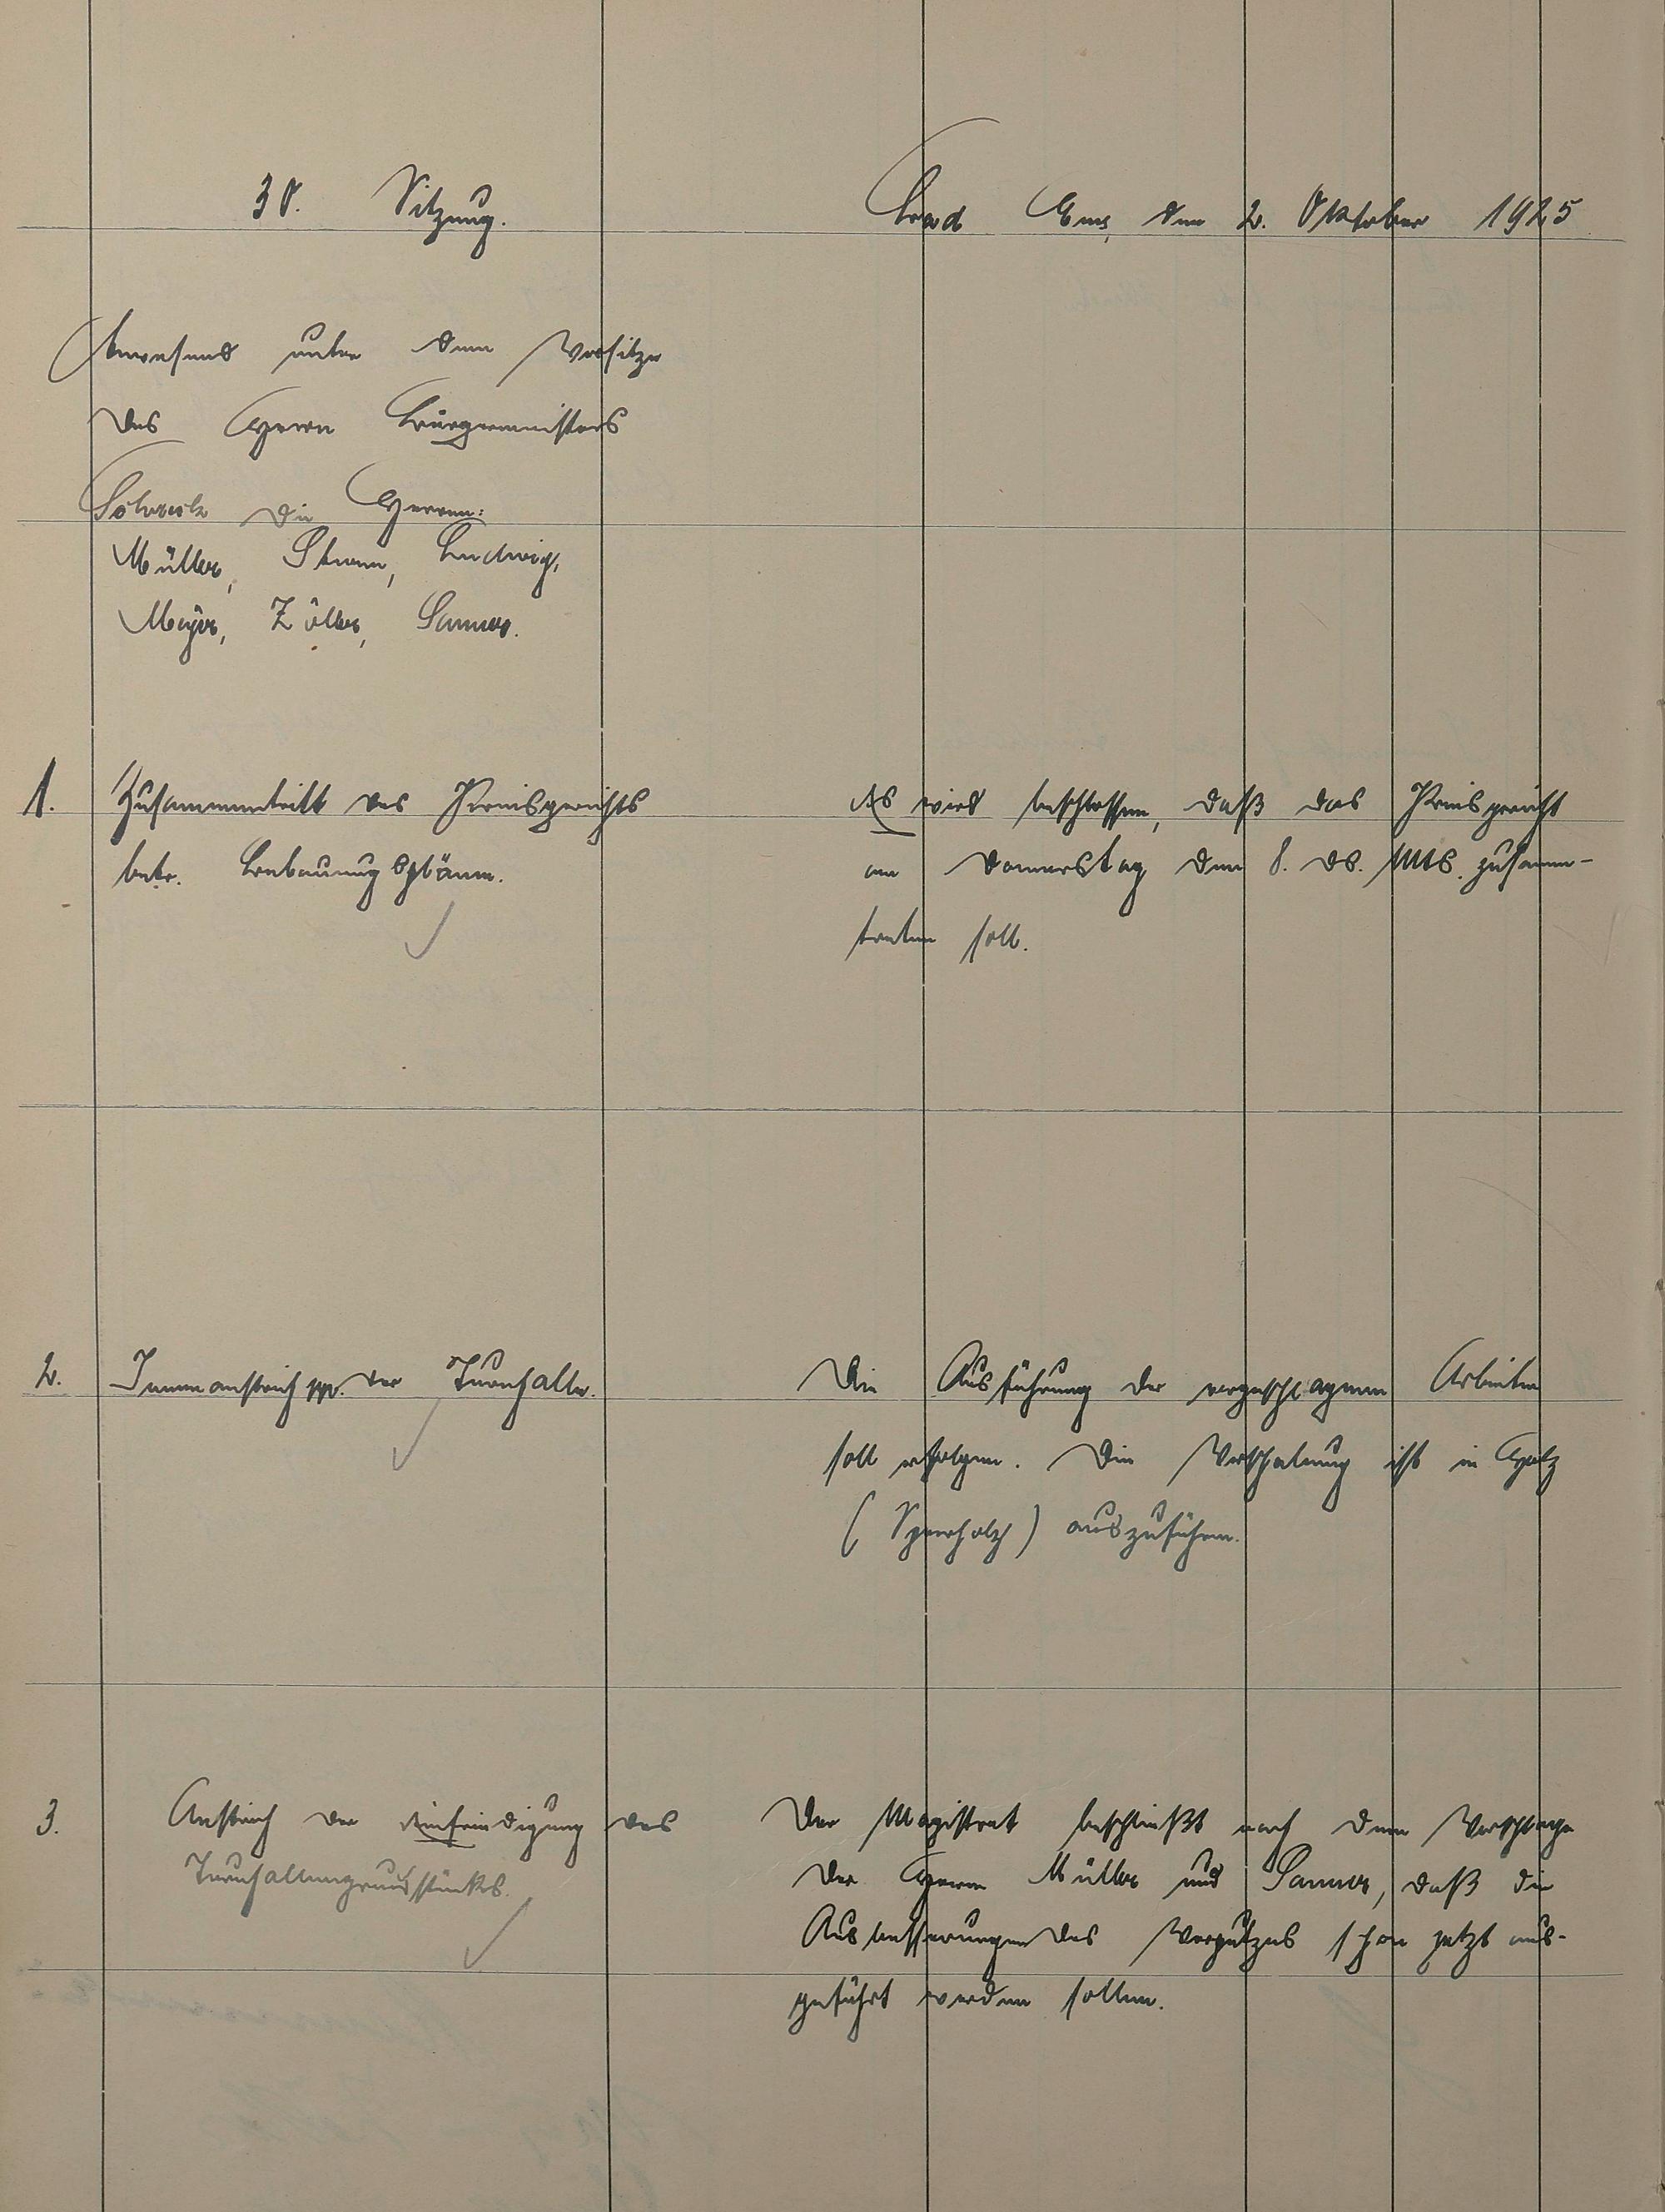 30. Sitzung.
Bad Ems, den 2. Oktober 1925
Anwesend unter dem Vorsitze
des Herrn Bürgermeisters
die Herren:
Müller, Ludwig,
Meyer, Zöller, Sanner.
1. Zusammentritt des Preisgerichts
betr. Bebauungspläne.
Es wird beschlossen, daß das Preisgericht
am Donnerstag den 8. ds. Mts. zusammen-
treten soll.
2. Innenanstrich pp. der Turnhalle.
Die Ausführung der vorgeschlagenen Arbeiten
soll erfolgen. Die Verschalung ist in Holz
(Sperrholz) auszuführen.
3. Anstrich der Einfriedigung des
Turnhallengrundstücks.
Der Magistrat beschließt nach dem Vorschlage
der Herren Müller und Sanner, daß die
Ausbesserungen des Verputzes schon jetzt aus-
geführt werden sollen.